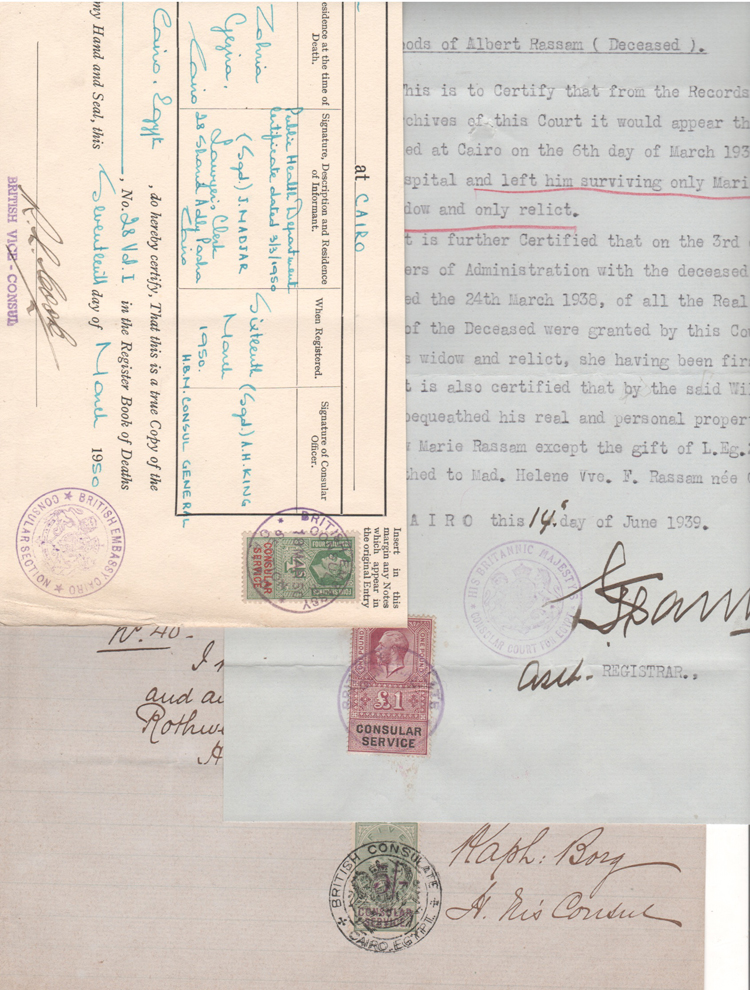 esidence at the time of Death.
Signature, Description and Residence of Informant.
When Registered.
Signature of Consular Officer.
at CAIRO
Zohria
Gezira,
Cairo
Public Health Department
Certificate dated 3/3/1950
(Sgd) J. NADJAR
Lawyer's Clerk
28 Sharia Adly Pasha
Cairo
Sixteenth
March
1950.
(Sgd.) A.H. KING
H.B.M. CONSUL GENERAL
Insert in this
margin any Notes
which appear in
the original Entry
Cairo, Egypt, do hereby certify, That this is a true Copy of the
, No. 28 Vol. I in the Register Book of Deaths
my Hand and Seal, this Seventeenth day of March 1950
BRITISH VICE-CONSUL
BRITISH EMBASSY CAIRO
CONSULAR SECTION
CONSULAR
SERVICE
oods of Albert Rassam ( Deceased ).
his is to Certify that from the Records
rchives of this Court it would appear th
ed at Cairo on the 6th day of March 193
spital and left him surviving only Mari
dow and only relict.
t is further Certified that on the 3rd
ers of Administration with the deceased
ed the 24th March 1938, of all the Real
of the Deceased were granted by this Cou
s widow and relict, she having been fir
t is also certified that by the said Wil
bequeathed his real and personal proper
w Marie Rassam except the gift of L.Eg.
hed to Mad. Helene Vve. F. Rassam née
AIRO this 14 day of June 1939.
HIS BRITANNIC MAJESTY'S
CONSULAR COURT FOR EGYPT
Asst. REGISTRAR.,
ONE POUND
£1
CONSULAR
SERVICE
No. 40-
I
and a
Rothw
BRITISH CONSULATE
CAIRO. EGYPT.
CONSULAR
SERVICE
Raph: Borg
H. M's Consul